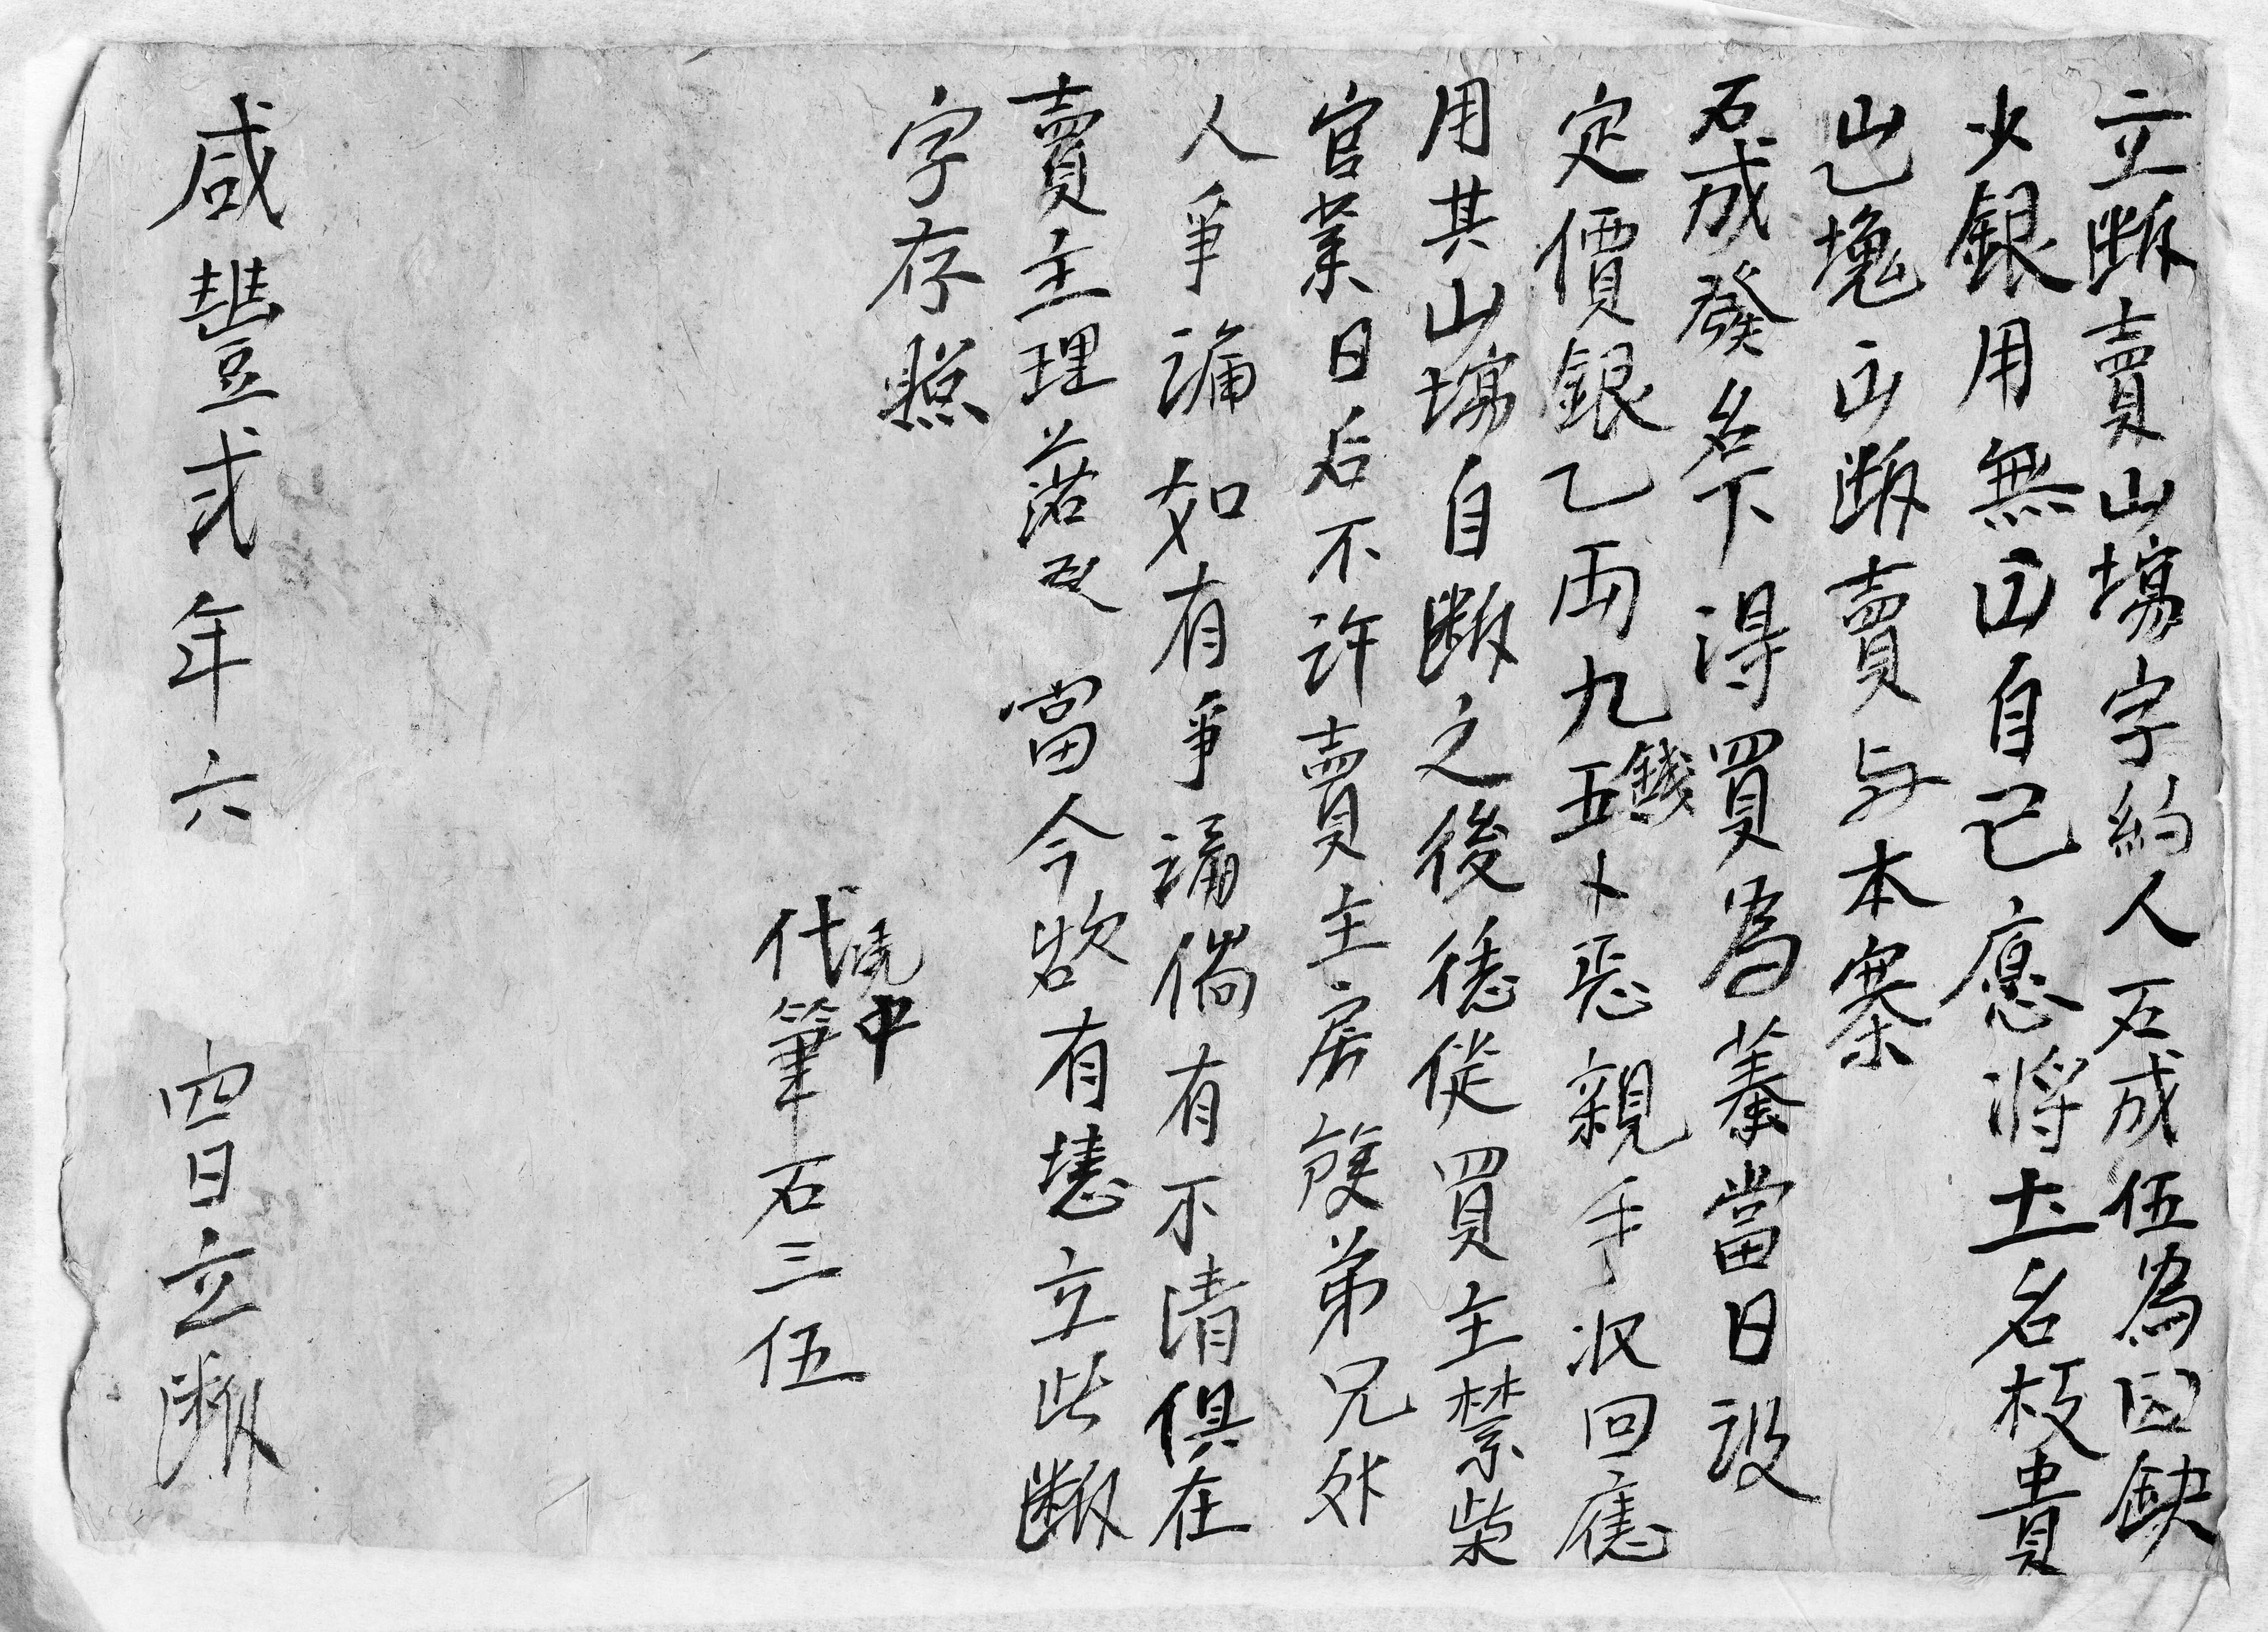 立断賣山塲字約人石成伍為因缺
少銀用無出自己應將土名杉貴
山乙塊出断賣与本寨
石成發名下得買為業當日設
定價銀乙両九錢五卜恶親手收回應
用其山塲自断之後德從買主禁柴
官業日后不许賣主房𠉀弟兄外
人爭論如有爭論倘有不清俱在
賣主理落 當今欲有憑立此断
字存照
憑中
代筆石三伍
咸豐弍年六 四日立断